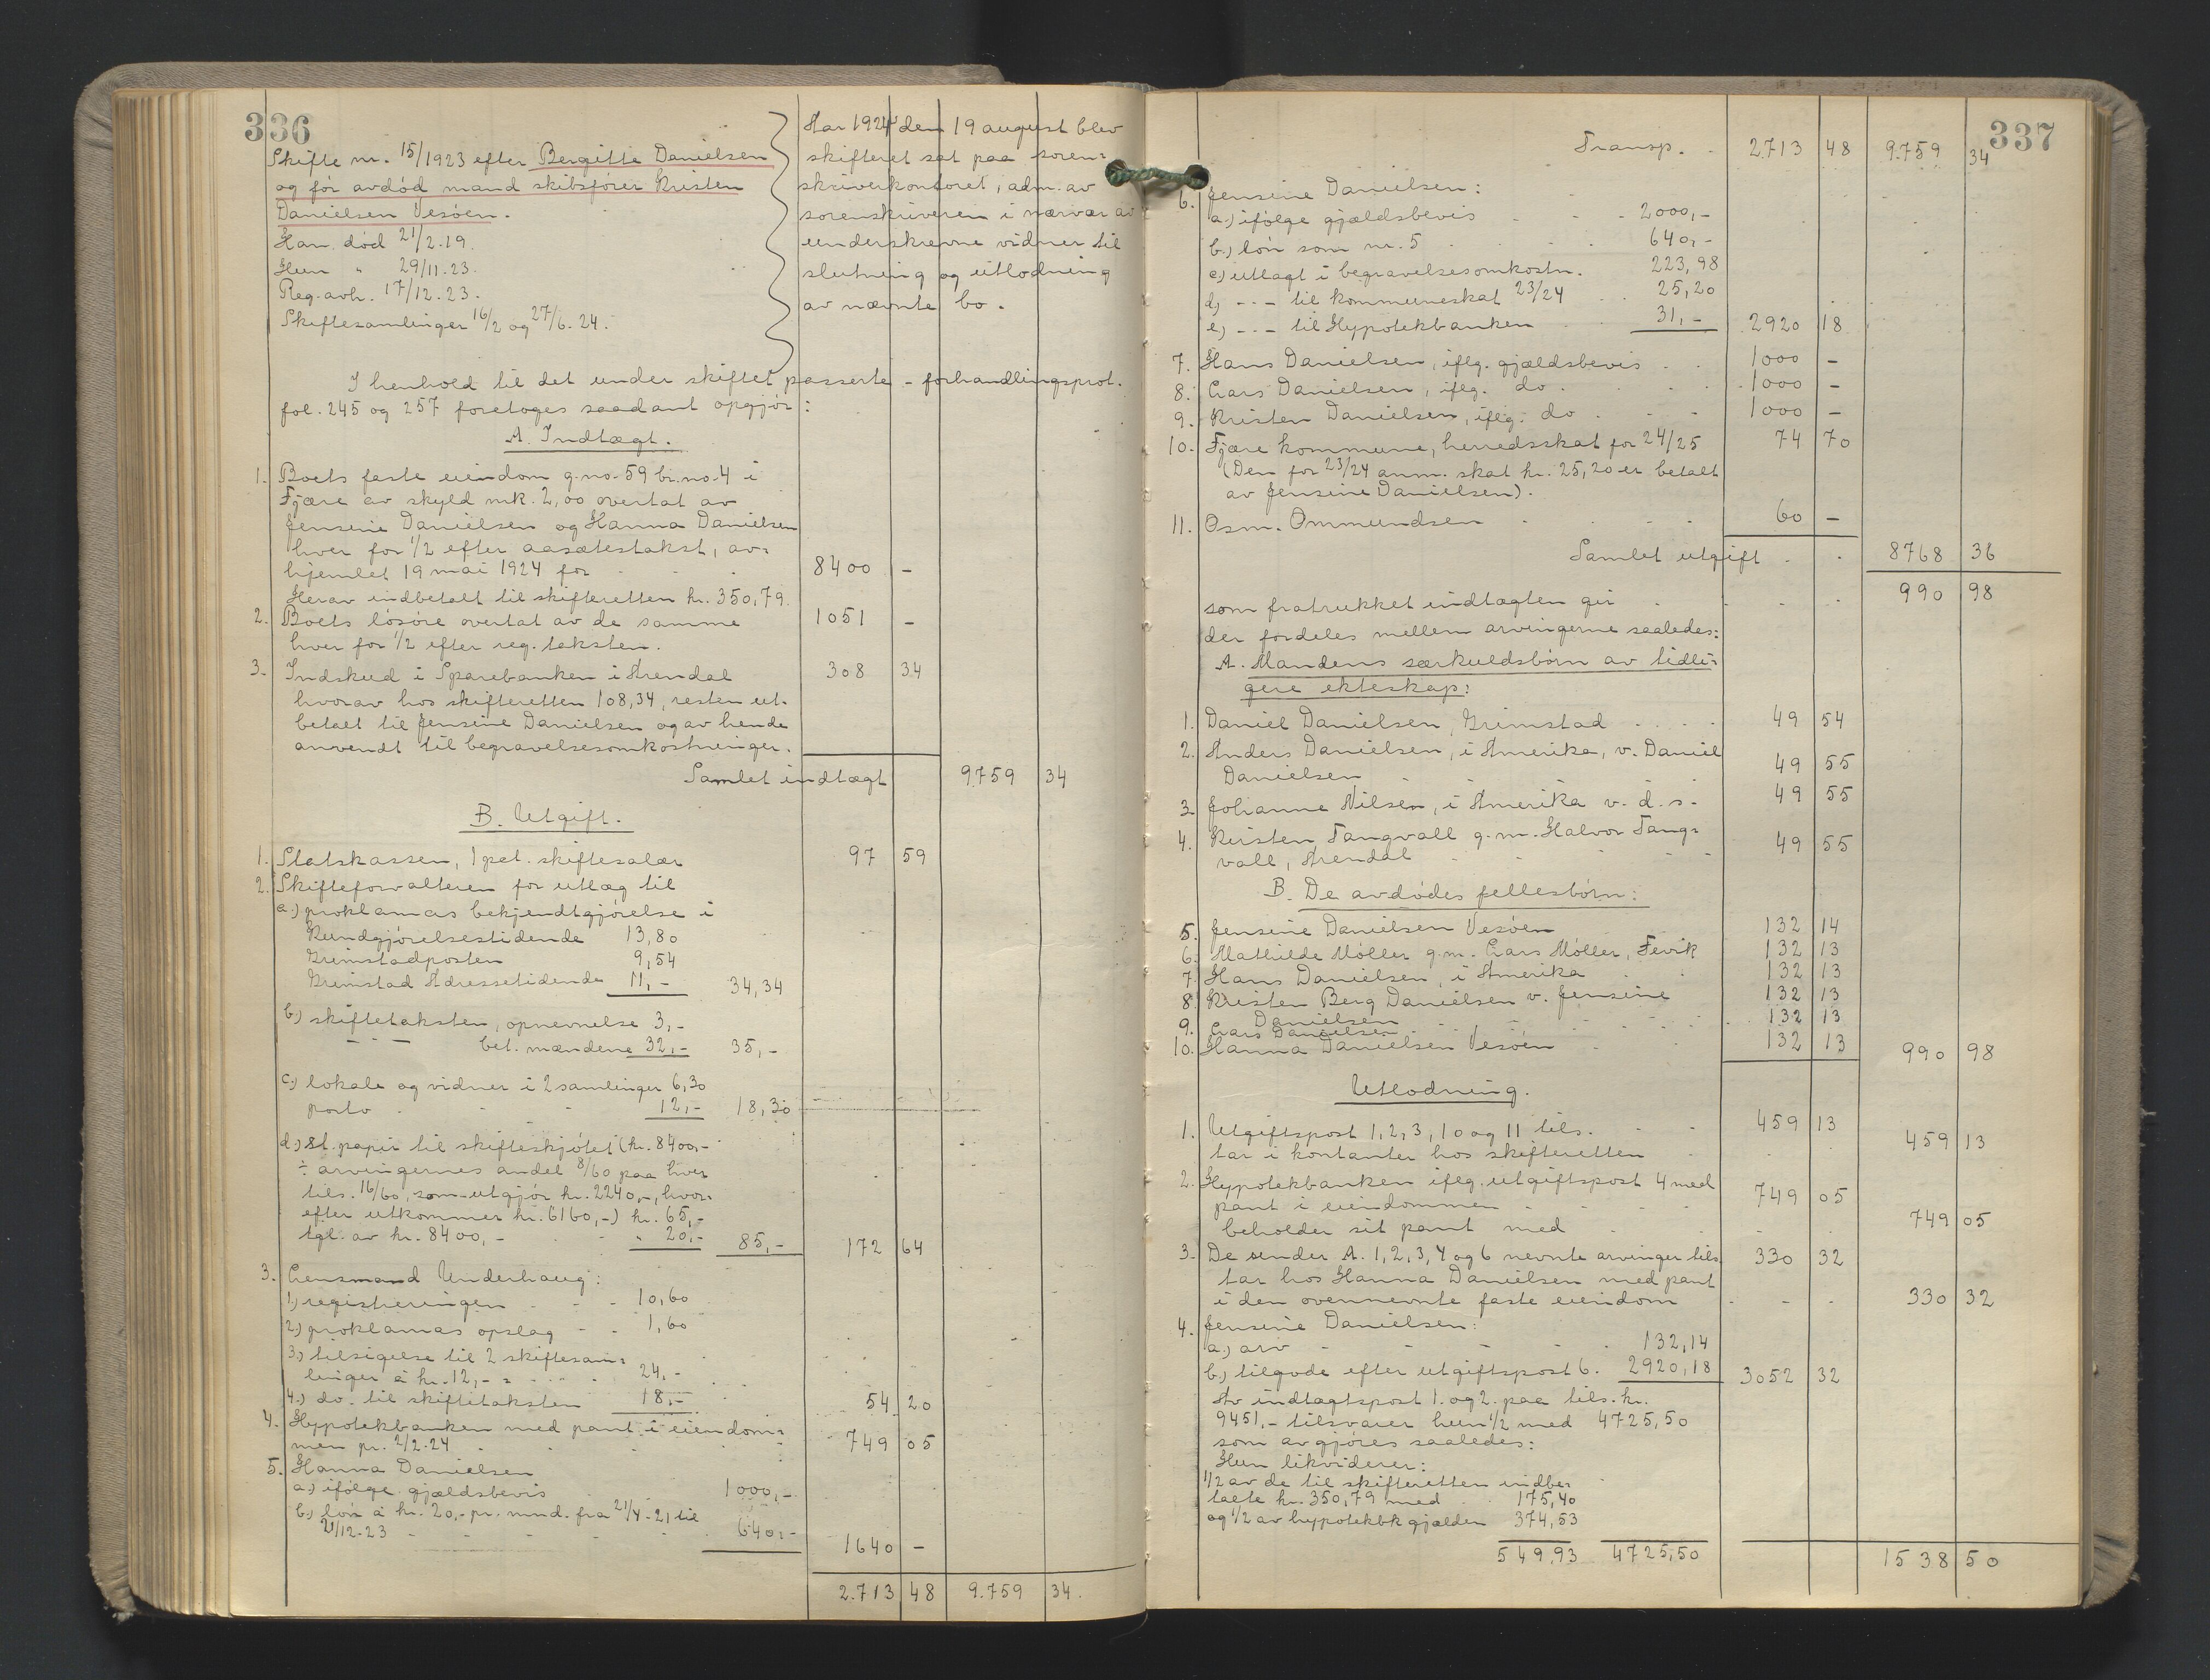 336
Skifte nr. 15/1923 efter Bergitte Danielsen
og før avdød mand skibsfører Kristen
Danielsen Vesøen.
Han død 21/2.19.
Hun " 29/11.23.
Reg. avh. 17/12.23.
Skiftesamlinger 16/2 og 27/6.24.
Aar 1924 den 19 august blev
skifteret sat paa soren=
skriverkontoret, adm. av
sorenskriveren i nærvær av
underskrevne vidner til
slutning og utlodning
av nævnte bo.
I henhold til det under skiftet passerte - forhandlingsprot.
fol. 245 og 257 foretages saadant opgjør:
A. Indtægt.
1. Boets faste eiendom g.no. 59 br.no. 4 i
Fjære av skyld mk. 2,00 overtat av
Jensine Danielsen og Hanna Danielsen
hver for 1/2 efter aasætestakst, av=
hjemlet 19 mai 1924 for 8400 -
Herav indbetalt til skifteretten kr. 350,79.
2. Boets løsøre overtat av de samme 1051 -
hver for 1/2 efter reg. taksten.
3. Indskud i Sparebanken i Arendal 308 34
hvorav hos skifteretten 108,34, resten ut-
betalt til Jensine Danielsen og av hende
anvendt til begravelsesomkostninger.
Samlet indtægt 9759 34
B. Utgift.
1. Statskassen, 1 pct. skiftesalær 97 59
2. Skifteforvalteren for utlæg til
a.) proklamas bekjendtgjørelse i
Kundgjørelsestidende 13,80
Grimstadposten 9,54
Grimstad Adressetidende 11,- 34,34
b.) skiftetaksten, opnevnelse 3,-
- - - bet. mændene 32,- 35,-
c.) lokale og vidner i 2 samlinger 6,30
porto 12,- 18,30
d.) st. papir til skifteskjøtet (kr. 8400,-
÷ arvingernes andel 8/60 paa hver
tils. 16/60, som utgjør kr. 2240,-, hvor=
efter utkommer kr. 6160,-) kr. 65,-
tgl. av kr. 8400,- " 20,- 85,- 172 64
3. Lensmand Underhaug:
1.) registreringen 10,60
2.) proklamas opslag 1,60
3.) tilsigelse til 2 skiftesam=
linger à kr. 12,- = 24,-
4.) do. til skiftetaksten 18,- 54 20
4. Hypotekbanken med pant i eiendom=
men pr. 2/2.24 749 05
5. Hanna Danielsen
a.) ifølge gjældsbevis 1000,-
b.) løn à kr. 20,- pr. mnd. fra 21/4-21 til
21/12-23 640,- 1640 -
2.713 48 9.759 34.
337
Transp. 2713 48 9.759 34
6. Jensine Danielsen:
a.) ifølge gjældsbevis 2000,-
b.) løn som nr. 5 640,-
c.) utlagt i begravelsesomkostn. 223,98
d.) - - - til kommuneskat 23/24 25,20
e.) - - - til Hypotekbanken 31,- 2920 18
7. Hans Danielsen, iflg. gjældsbevis 1000 -
8. Lars Danielsen, iflg. do. 1000 -
9. Kristen Danielsen, iflg. do 1000 -
10. Fjære kommune, herredsskat for 24/25 74 70
(Den for 23/24 anm. skat kr. 25,20 er betalt
av Jensine Danielsen).
11. Osm. Ommundsen 60 -
Samlet utgift 8768 36
som fratrukket indtægten gir 990 98
der fordeles mellem arvingerne saaledes:
A. Mandens særkuldsbørn av tidli=
gere ekteskap:
1. Daniel Danielsen, Grimstad 49 54
2. Anders Danielsen, i Amerika, v. Daniel
Danielsen 49 55
3 Johanne Nilsen, i Amerika v. d. s. 49 55
4. Kirsten Tangvall g.m. Halvor Tang=
vall, Arendal 49 55
B. De avdødes fellesbørn:
5. Jensine Danielsen Vesøen 132 14
6. Mathilde Møller g.m. Lars Møller, Fevik 132 13
7. Hans Danielsen, i Amerika 132 13
8. Kristen Berg Danielsen v. Jensine 132 13
Danielsen
9. Lars Danielsen 132 13
10. Hanna Danielsen Vesøen 132 13 990 98
Utlodning.
1. Utgiftspost 1, 2, 3, 10 og 11 tils. 459 13
tar i kontanter hos skifteretten 459 13
2. Hypotekbanken iflg. utgiftspost 4 med
pant i eiendommen 749 05
beholder sit pant med 749 05
3. De under A. 1, 2, 3, 4 og 6 nevnte arvinger tils. 330 32
tar hos Hanna Danielsen med pant
i den ovennevnte faste eiendom 330 32
4. Jensine Danielsen:
a.) arv 132,14
b.) tilgode efter utgiftspost 6. 2920,18 3052 32
Av indtægtspost 1. og 2. paa tils. kr.
9451,- tilsvarer hun 1/2 med 4725,50
som avgjøres saaledes:
Hun likviderer:
1/2 av de til skifteretten indbe=
talte kr. 350,79 med 175,40
og 1/2 av hypotekbk gjælden 374,53
549,93 4725,50 1538 50